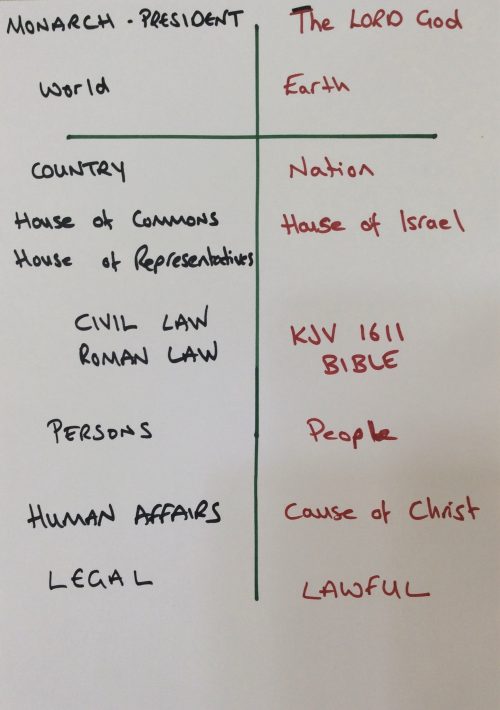 MONARCH - PRESIDENT The LORD God
World Earth
COUNTRY Nation
House of Commons House of Israel
House of Representatives
CIVIL LAW KJV 1611
ROMAN LAW BIBLE
PERSONS People
HUMAN AFFAIRS Cause of Christ
LEGAL LAWFUL